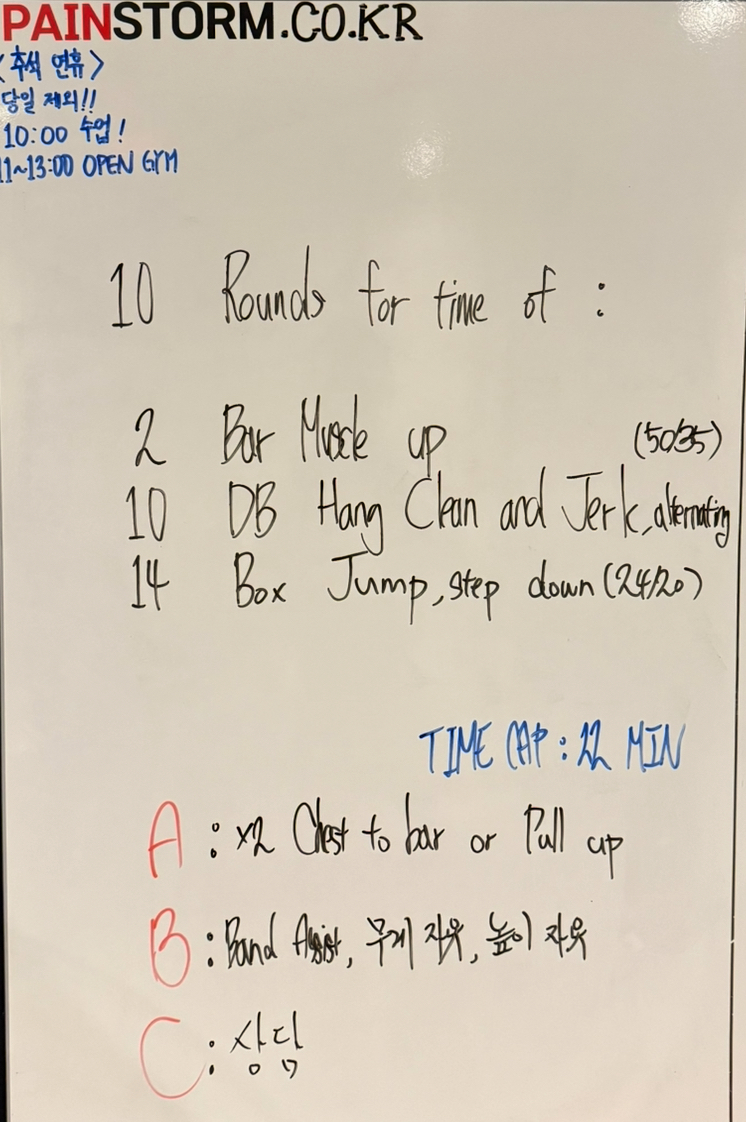 PAINSTORM.CO.KR
<추석 연휴>
당일 제외!!
10:00 수업!
11~13:00 OPEN GYM
10 Rounds for time of :
2 Bar Muscle up (50/35)
10 DB Hang Clean and Jerk, alternating
14 Box Jump, step down (24/20)
TIME CAP : 22 MIN
A : x2 Chest to bar or Pull up
B : Band Assist, 무게 자유, 높이 자유
C : 상담